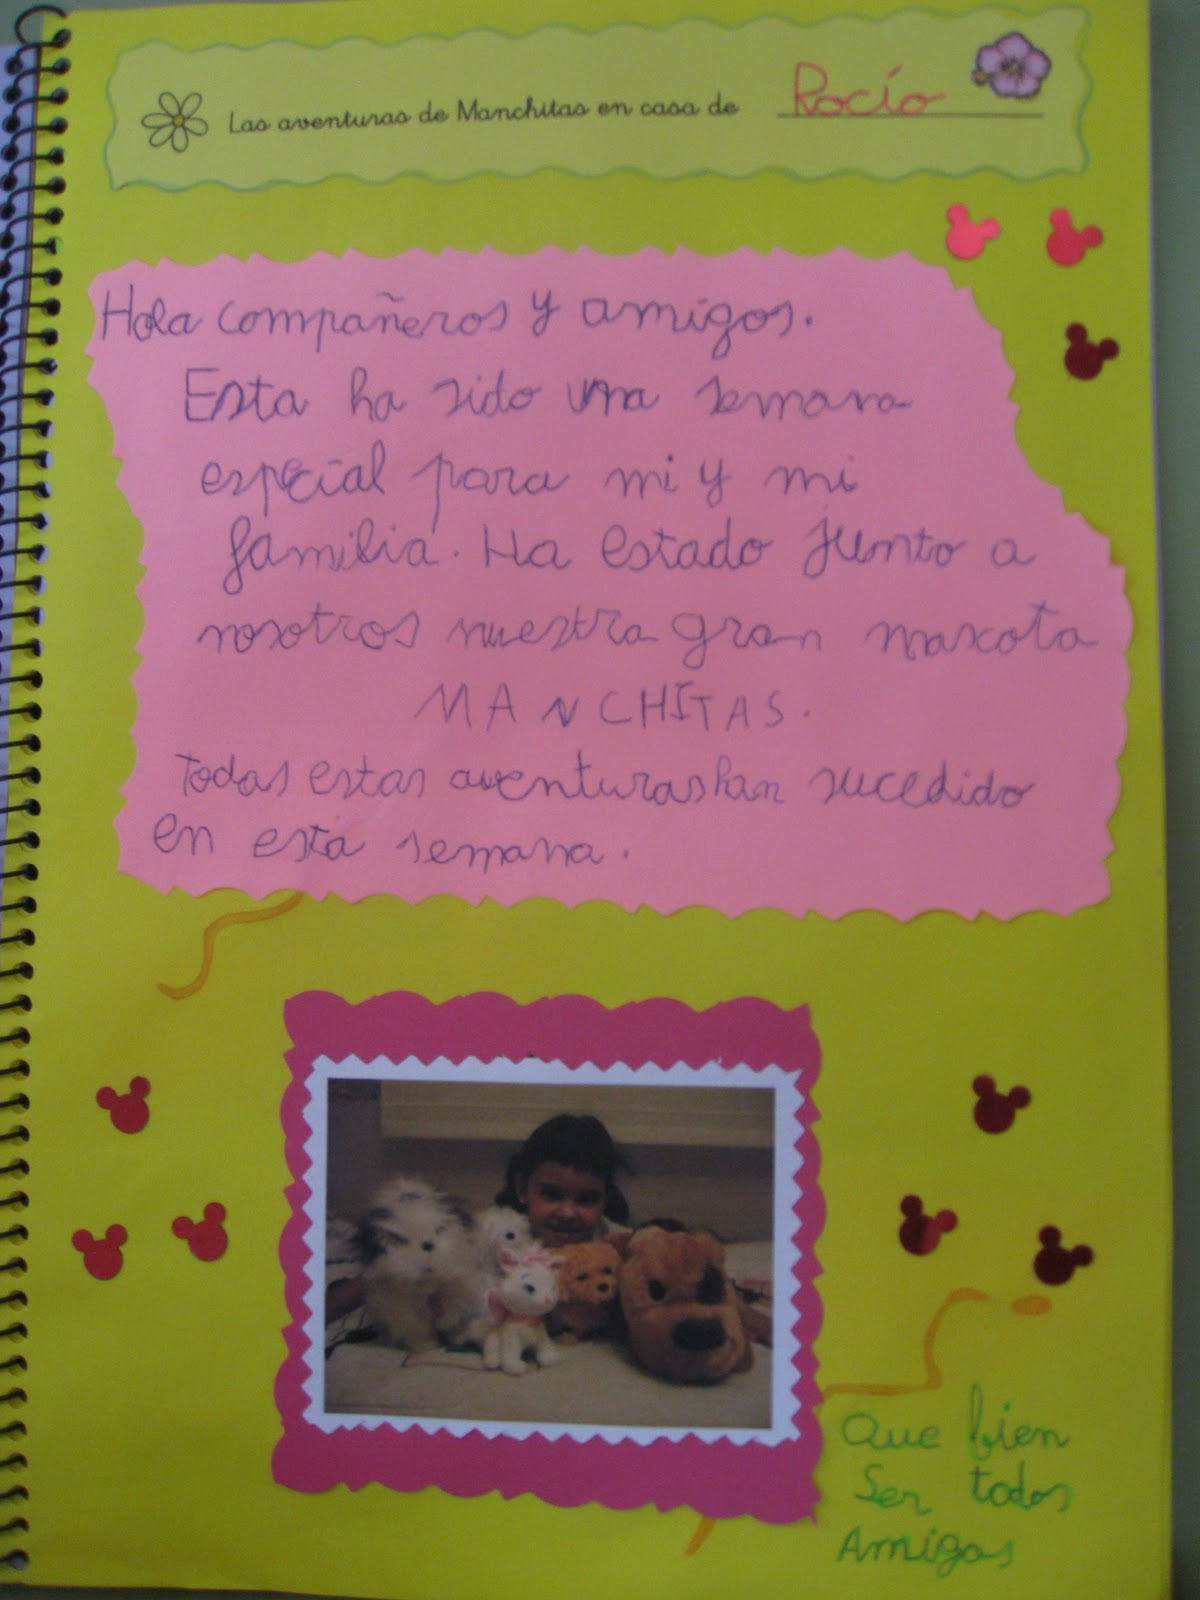 Las aventuras de Manchitas en casa de Rocío
Hola compañeros y amigos.
Esta ha sido una semana
especial para mi y mi
familia. Ha estado junto a
nosotros nuestra gran mascota
MANCHITAS.
Todas estas aventuras han sucedido
en esta semana.
Que bien
Ser todos
Amigos